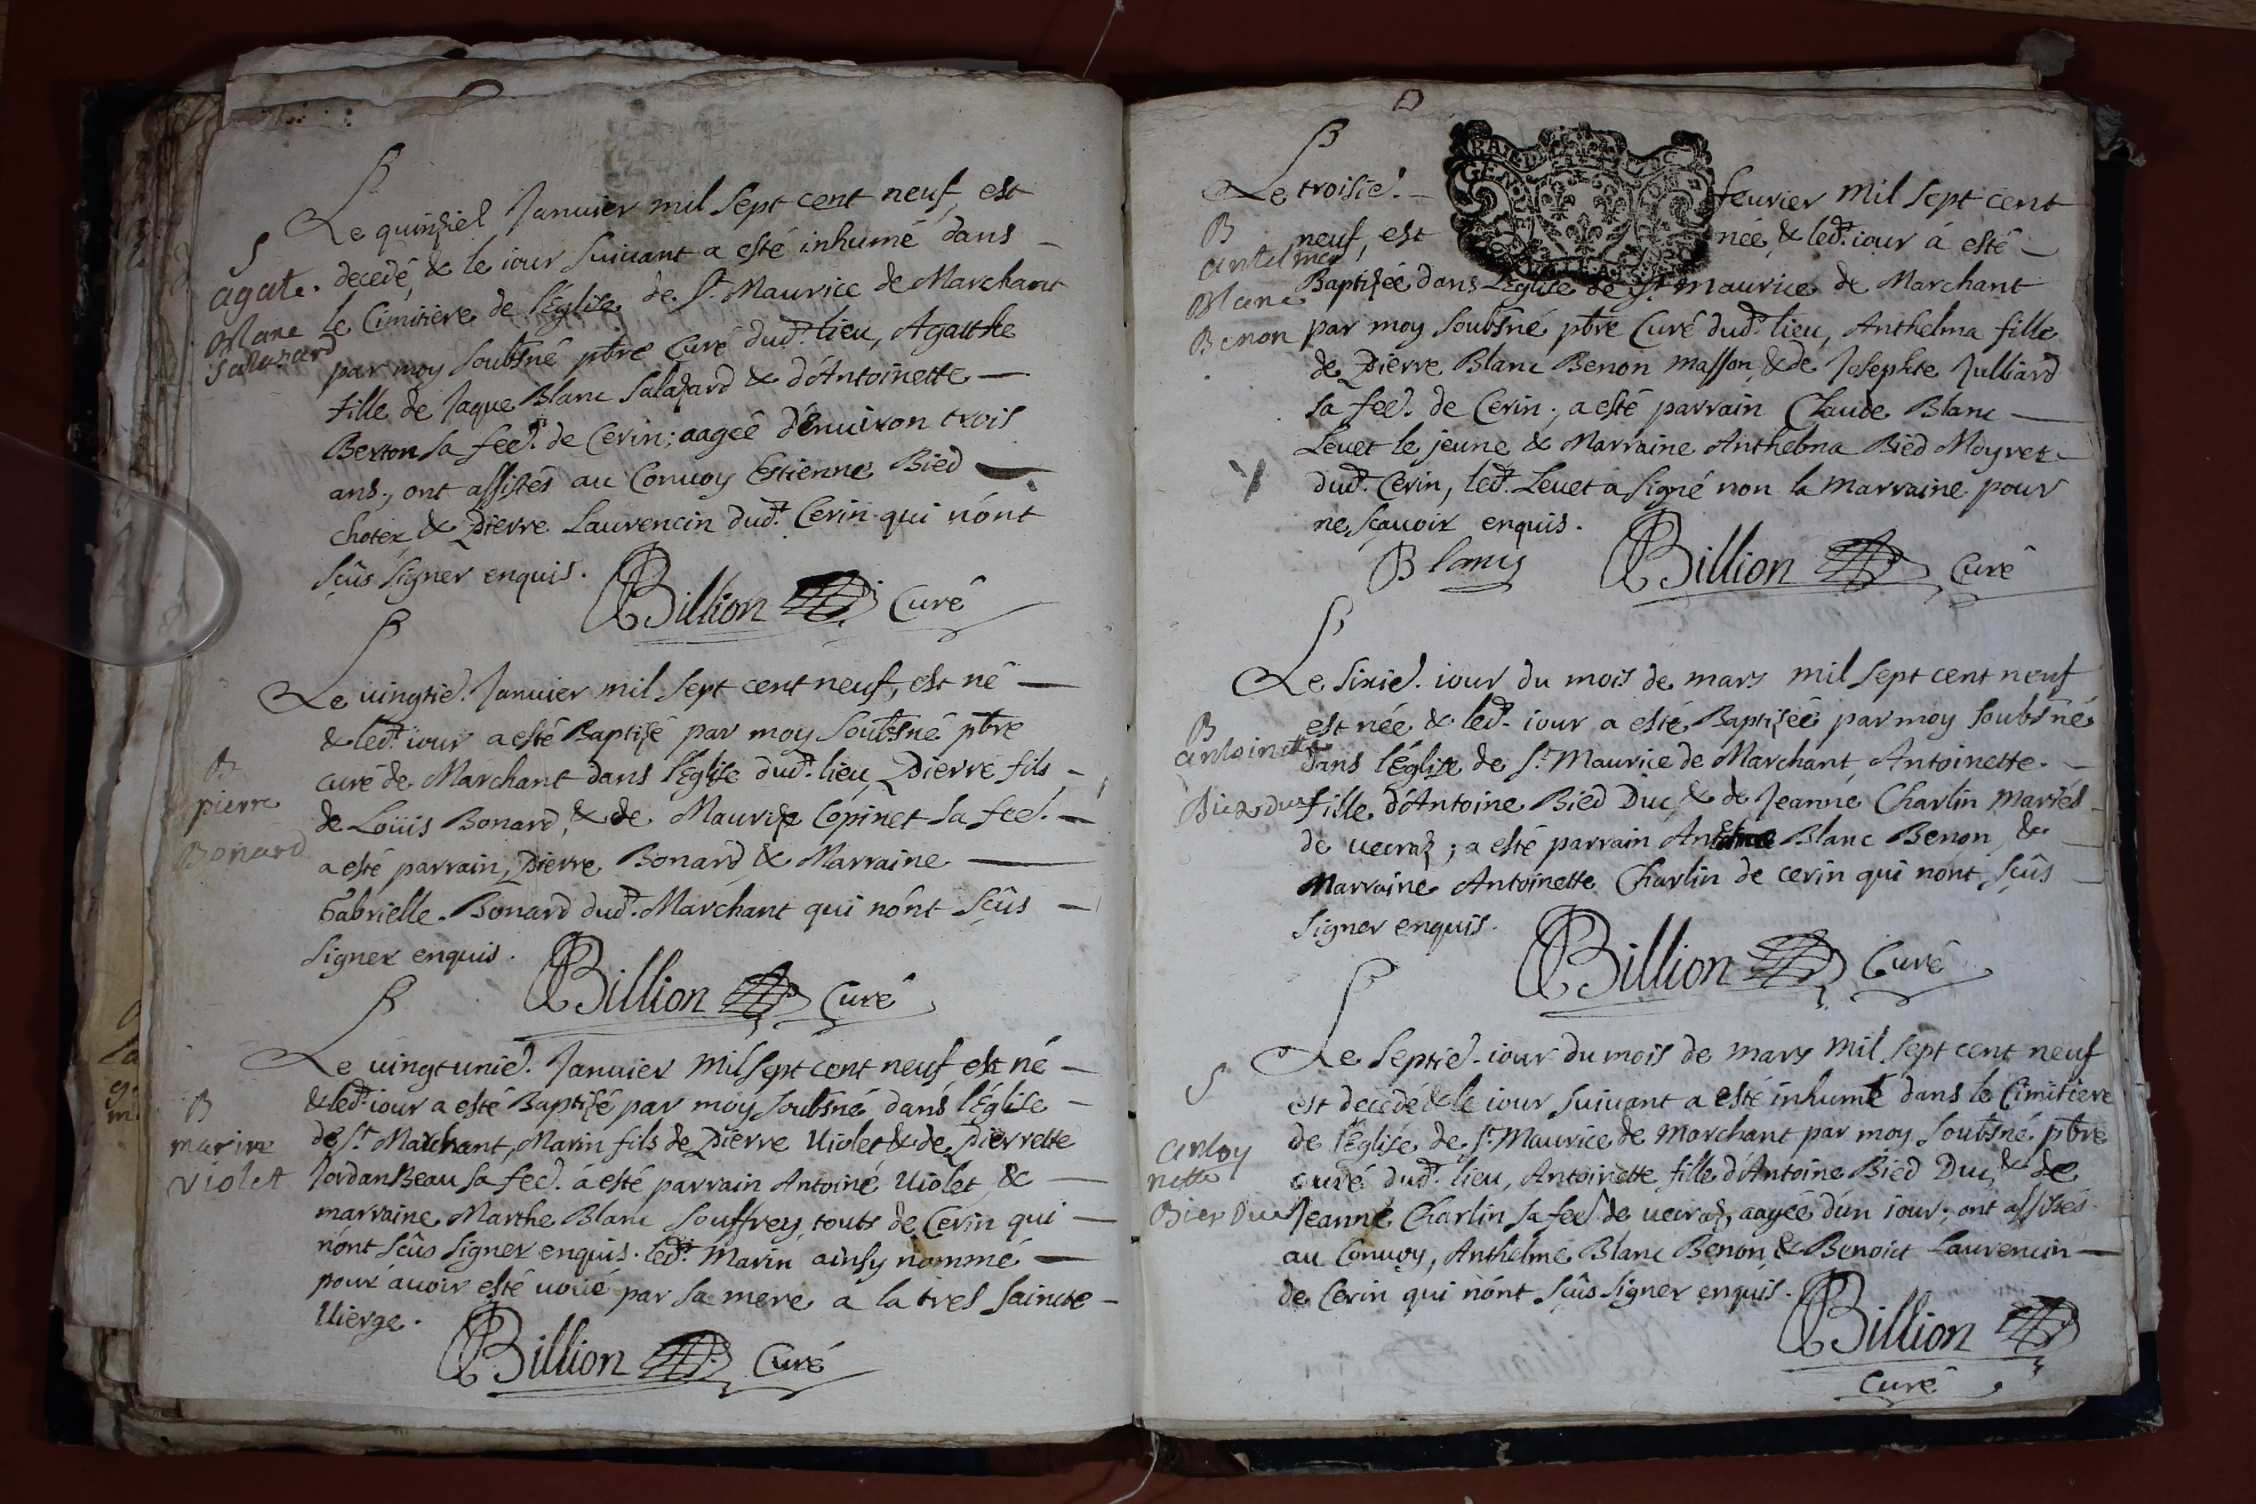 Le quinzie. Januier mil sept cent neuf, est
S
agate. decedé, & le iour suiuant a esté inhumé dans
Blanc le Cimitiere de l'Eglise de St. Maurice de Marchant
Salazard par moy soubsné pbre Curé dud. lieu, Agatthe
fille de Jaque Blanc Salazard & d'Antoinette
Berton sa fee. de Cerin; aageé d'enuiron trois
ans, ont assistés au Conuoy Estienne Bied
choter & Pierre Laurencin dud. Cerin qui nónt
sçûs signer enquis.
Billion Curé
Le uingtie. Januier mil sept cent neuf, est né
& led. iour a esté Baptizé par moy soubsné pbre
B
curé de Marchant dans l'Eglise dud. lieu, Pierre fils
pierre
de Loüis Bonard, & de Maurize Copinet sa fee.
Bonard
a esté parrain, Pierre Bonard & Marraine
Gabrielle Bonard dud. Marchant qui nónt sçûs
signer enquis.
Billion Curé
Le uingtunie. Januier mil sept cent neuf est né
B
& led. iour a esté Baptizé par moy soubsné dans l'Eglise
de St. Marchant, Marin fils de Pierre Uiolet & de Pierrette
marine
violet
JordanBeau sa fee. á esté parrain Antoiné Uiolet &
marraine Marthe Blanc Souffrey, touts de Cerin qui
nónt sçûs signer enquis. led. Marin ainsy nommé
pour auoir esté uoüe par sa mere a la tres saincte
Uierge.
Billion Curé
Le troisie. feurier mil sept cent
B
neuf, est née & led. iour á esté
antelmea
Blanc Baptizée dans l'Eglise de St. Maurice de Marchant
Benon par moy soubsné pbre Curé dud. lieu, Anthelma fille
de Pierre Blanc Benon masson, & de Josephte Julliard
sa fee. de Cerin; a esté parrain Claude Blanc
Leuet le jeune & Marraine Anthelma Bied Moyret
dud. Cerin, led. Leuet a signé non la marraine pour
ne sçauoir enquis.
Billion Curé
Le sixie. iour du mois de mars mil sept cent neuf
B
est née & led. iour a esté Baptizée par moy soubsné
antoinette
dans l'Eglise de St. Maurice de Marchant, Antoinette
Bied duc fille d'Antoine Bied Duc & de Jeanne Charlin mariés
de uecraz; a esté parrain Blanc Benon, &
Marraine Antoinette Charlin de cerin qui nónt sçûs
signer enquis.
Billion Curé
Le septie. iour du mois de mars mil sept cent neuf
S
est decedé & le iour suiuant a esté inhumé dans le Cimitiere
de l'Eglise de St. Maurice de Marchant par moy soubsné pbre
antoy
nette
curé dud. lieu, Antoinette fille d'Antoine Bied Duc, & de
Bier Duc Jeanné Charlin sa fee. de uecraz, aagée d'un iour; ont assistés
au Conuoy, Anthelmé Blanc Benon & Benoict Laurencin
de Cerin qui nónt sçûs signer enquis.
Billion
curé